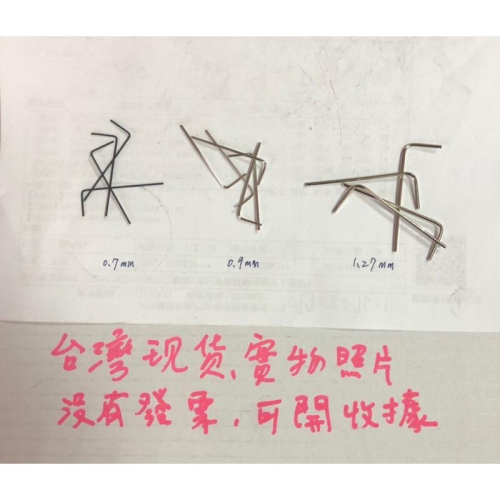 0.7mm 0.9mm 1.27mm
台灣现货、實物照片
没有發票，可開收據